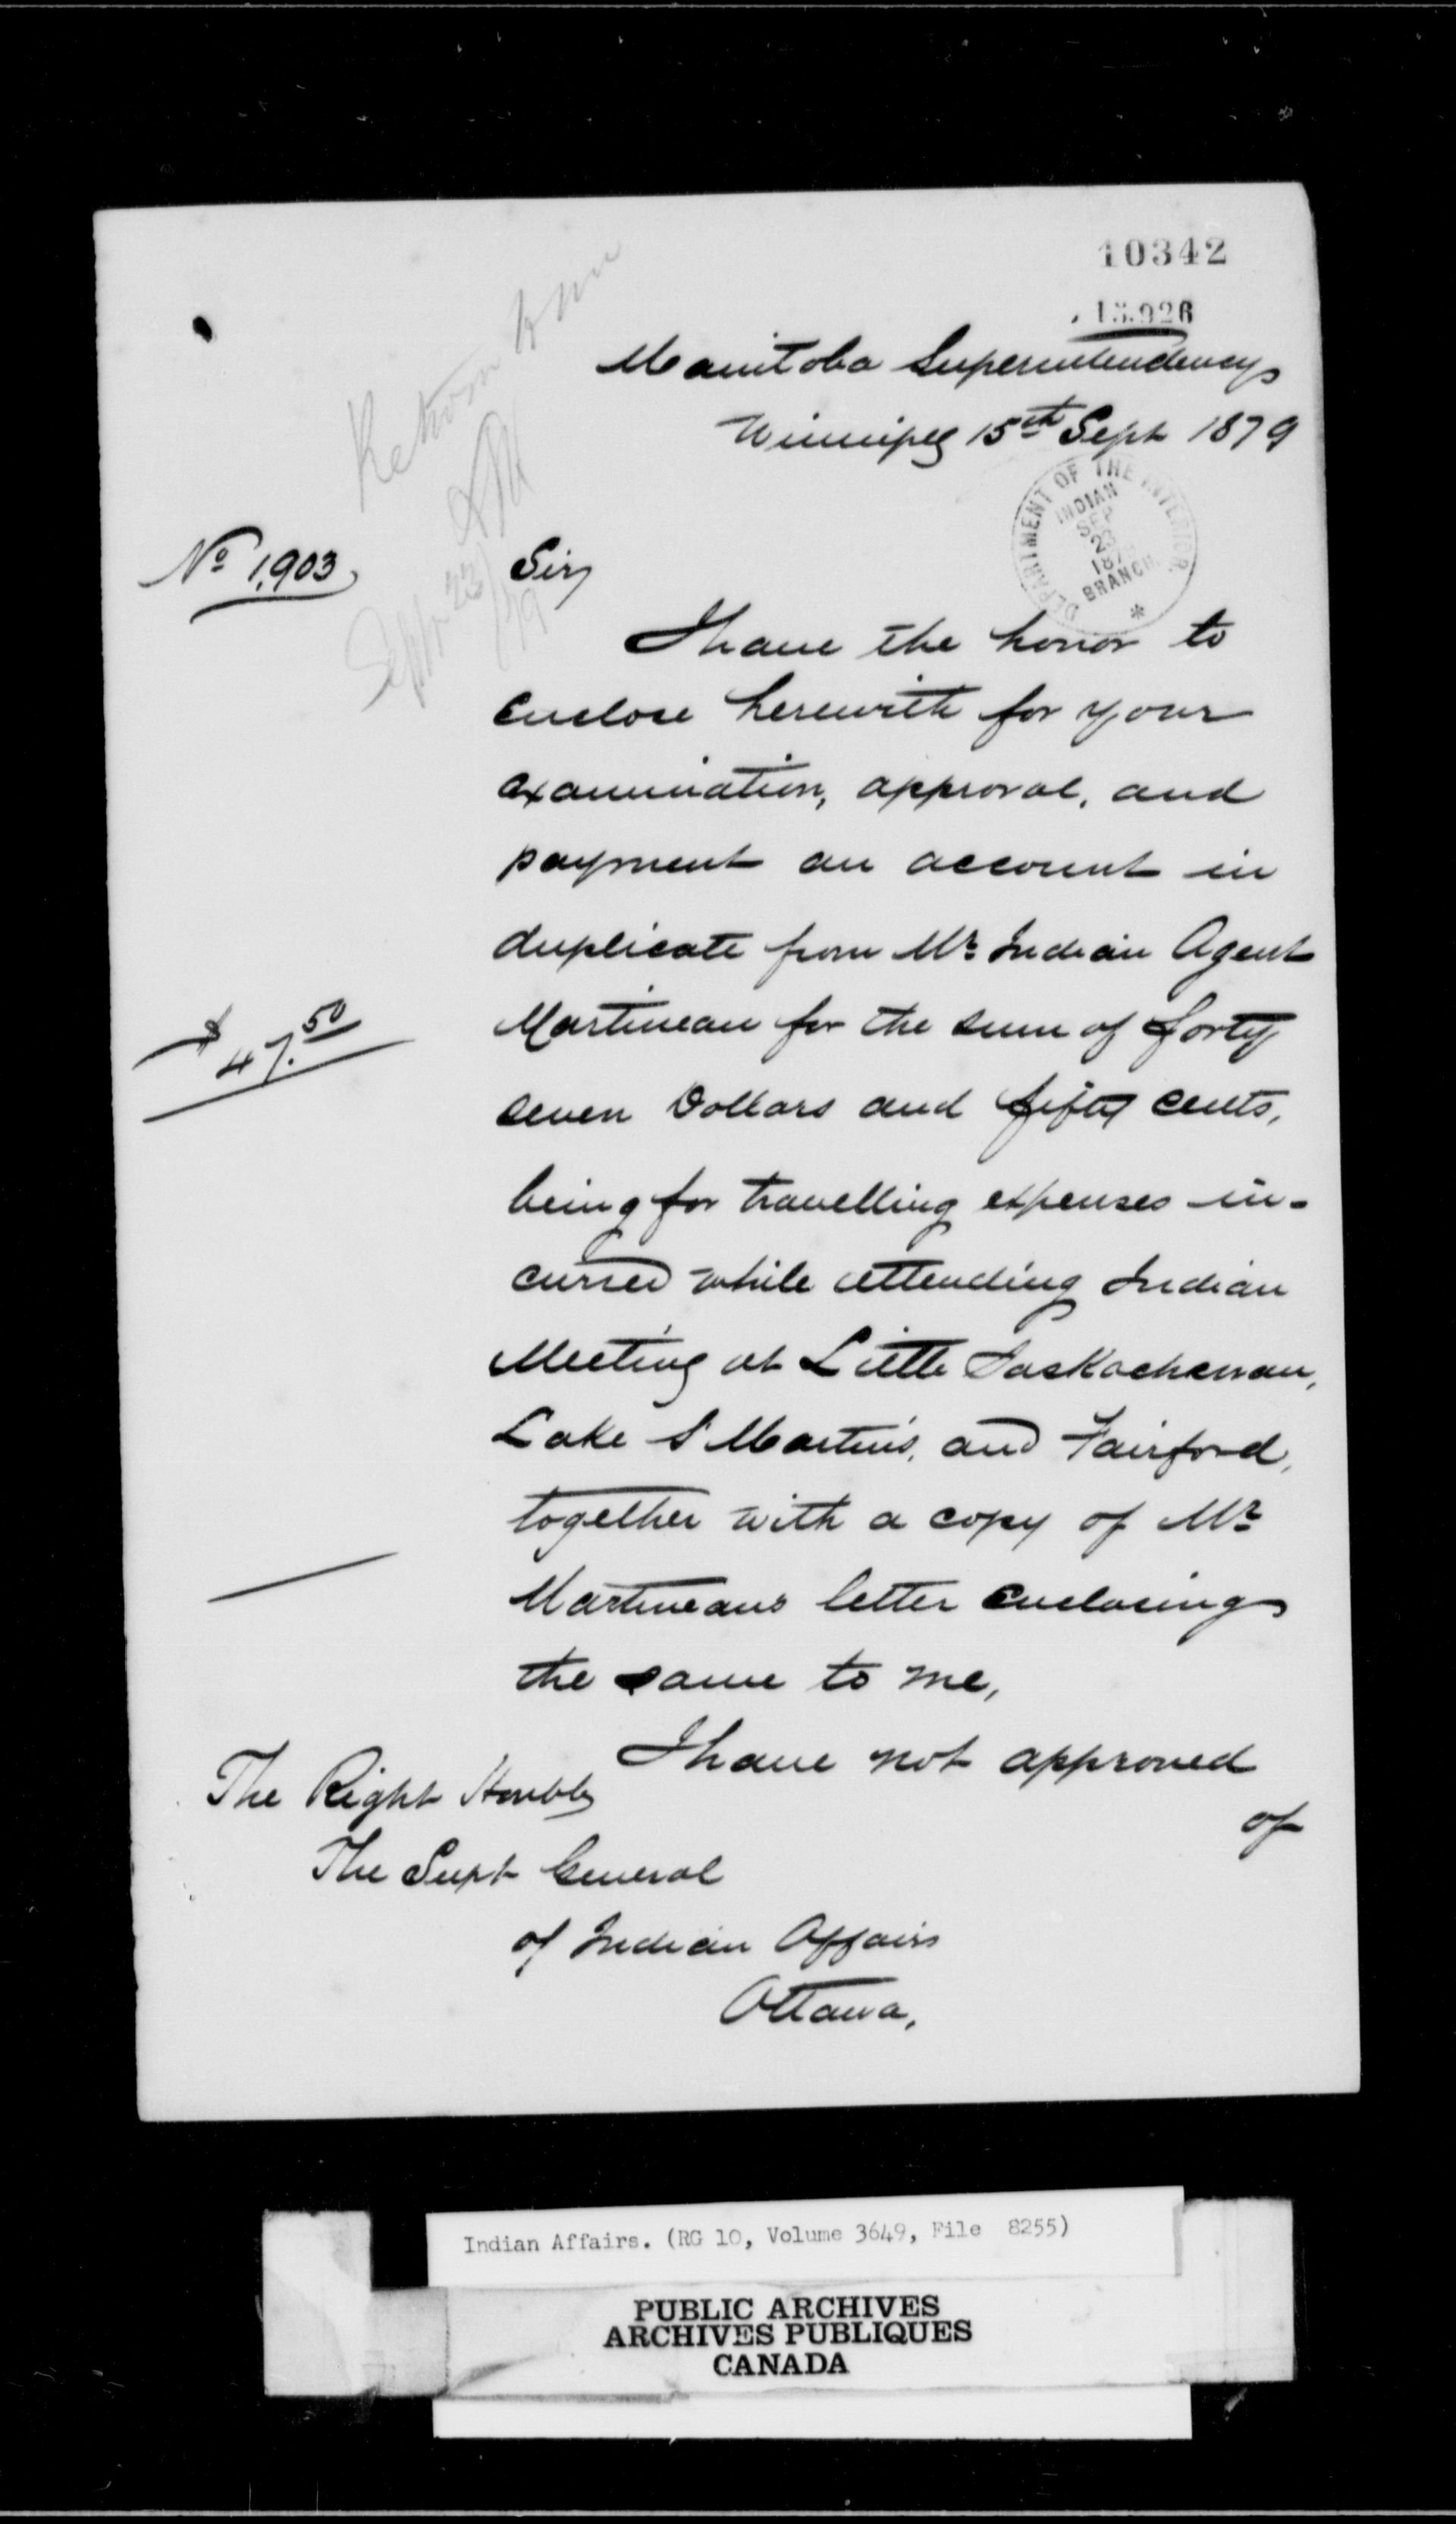 10342
13.926
Manitoba Superintendency
Winnipeg 15th Sept 1879
DEPARTMENT OF THE INTERIOR
INDIAN
SEP
23
187
BRANCH
*
Sept. 23/79
No 1,903
Sir,
I have the honor to
enclose herewith for your
examination, approval, and
payment an account in
duplicate from Mr Indian Agent
$47.50
Martineau for the sum of forty
seven Dollars and fifty cents,
being for travelling expenses in-
curred while attending Indian
Meeting at Little Saskachewan,
Lake St Martins, and Fairford,
together with a copy of Mr
Martineaus letter enclosing
the same to me,
I have not approved
of
The Right Honble
The Supt General
of Indian Affairs
Ottawa,
Indian Affairs. (RG 10, Volume 3649, File 8255)
PUBLIC ARCHIVES
ARCHIVES PUBLIQUES
CANADA